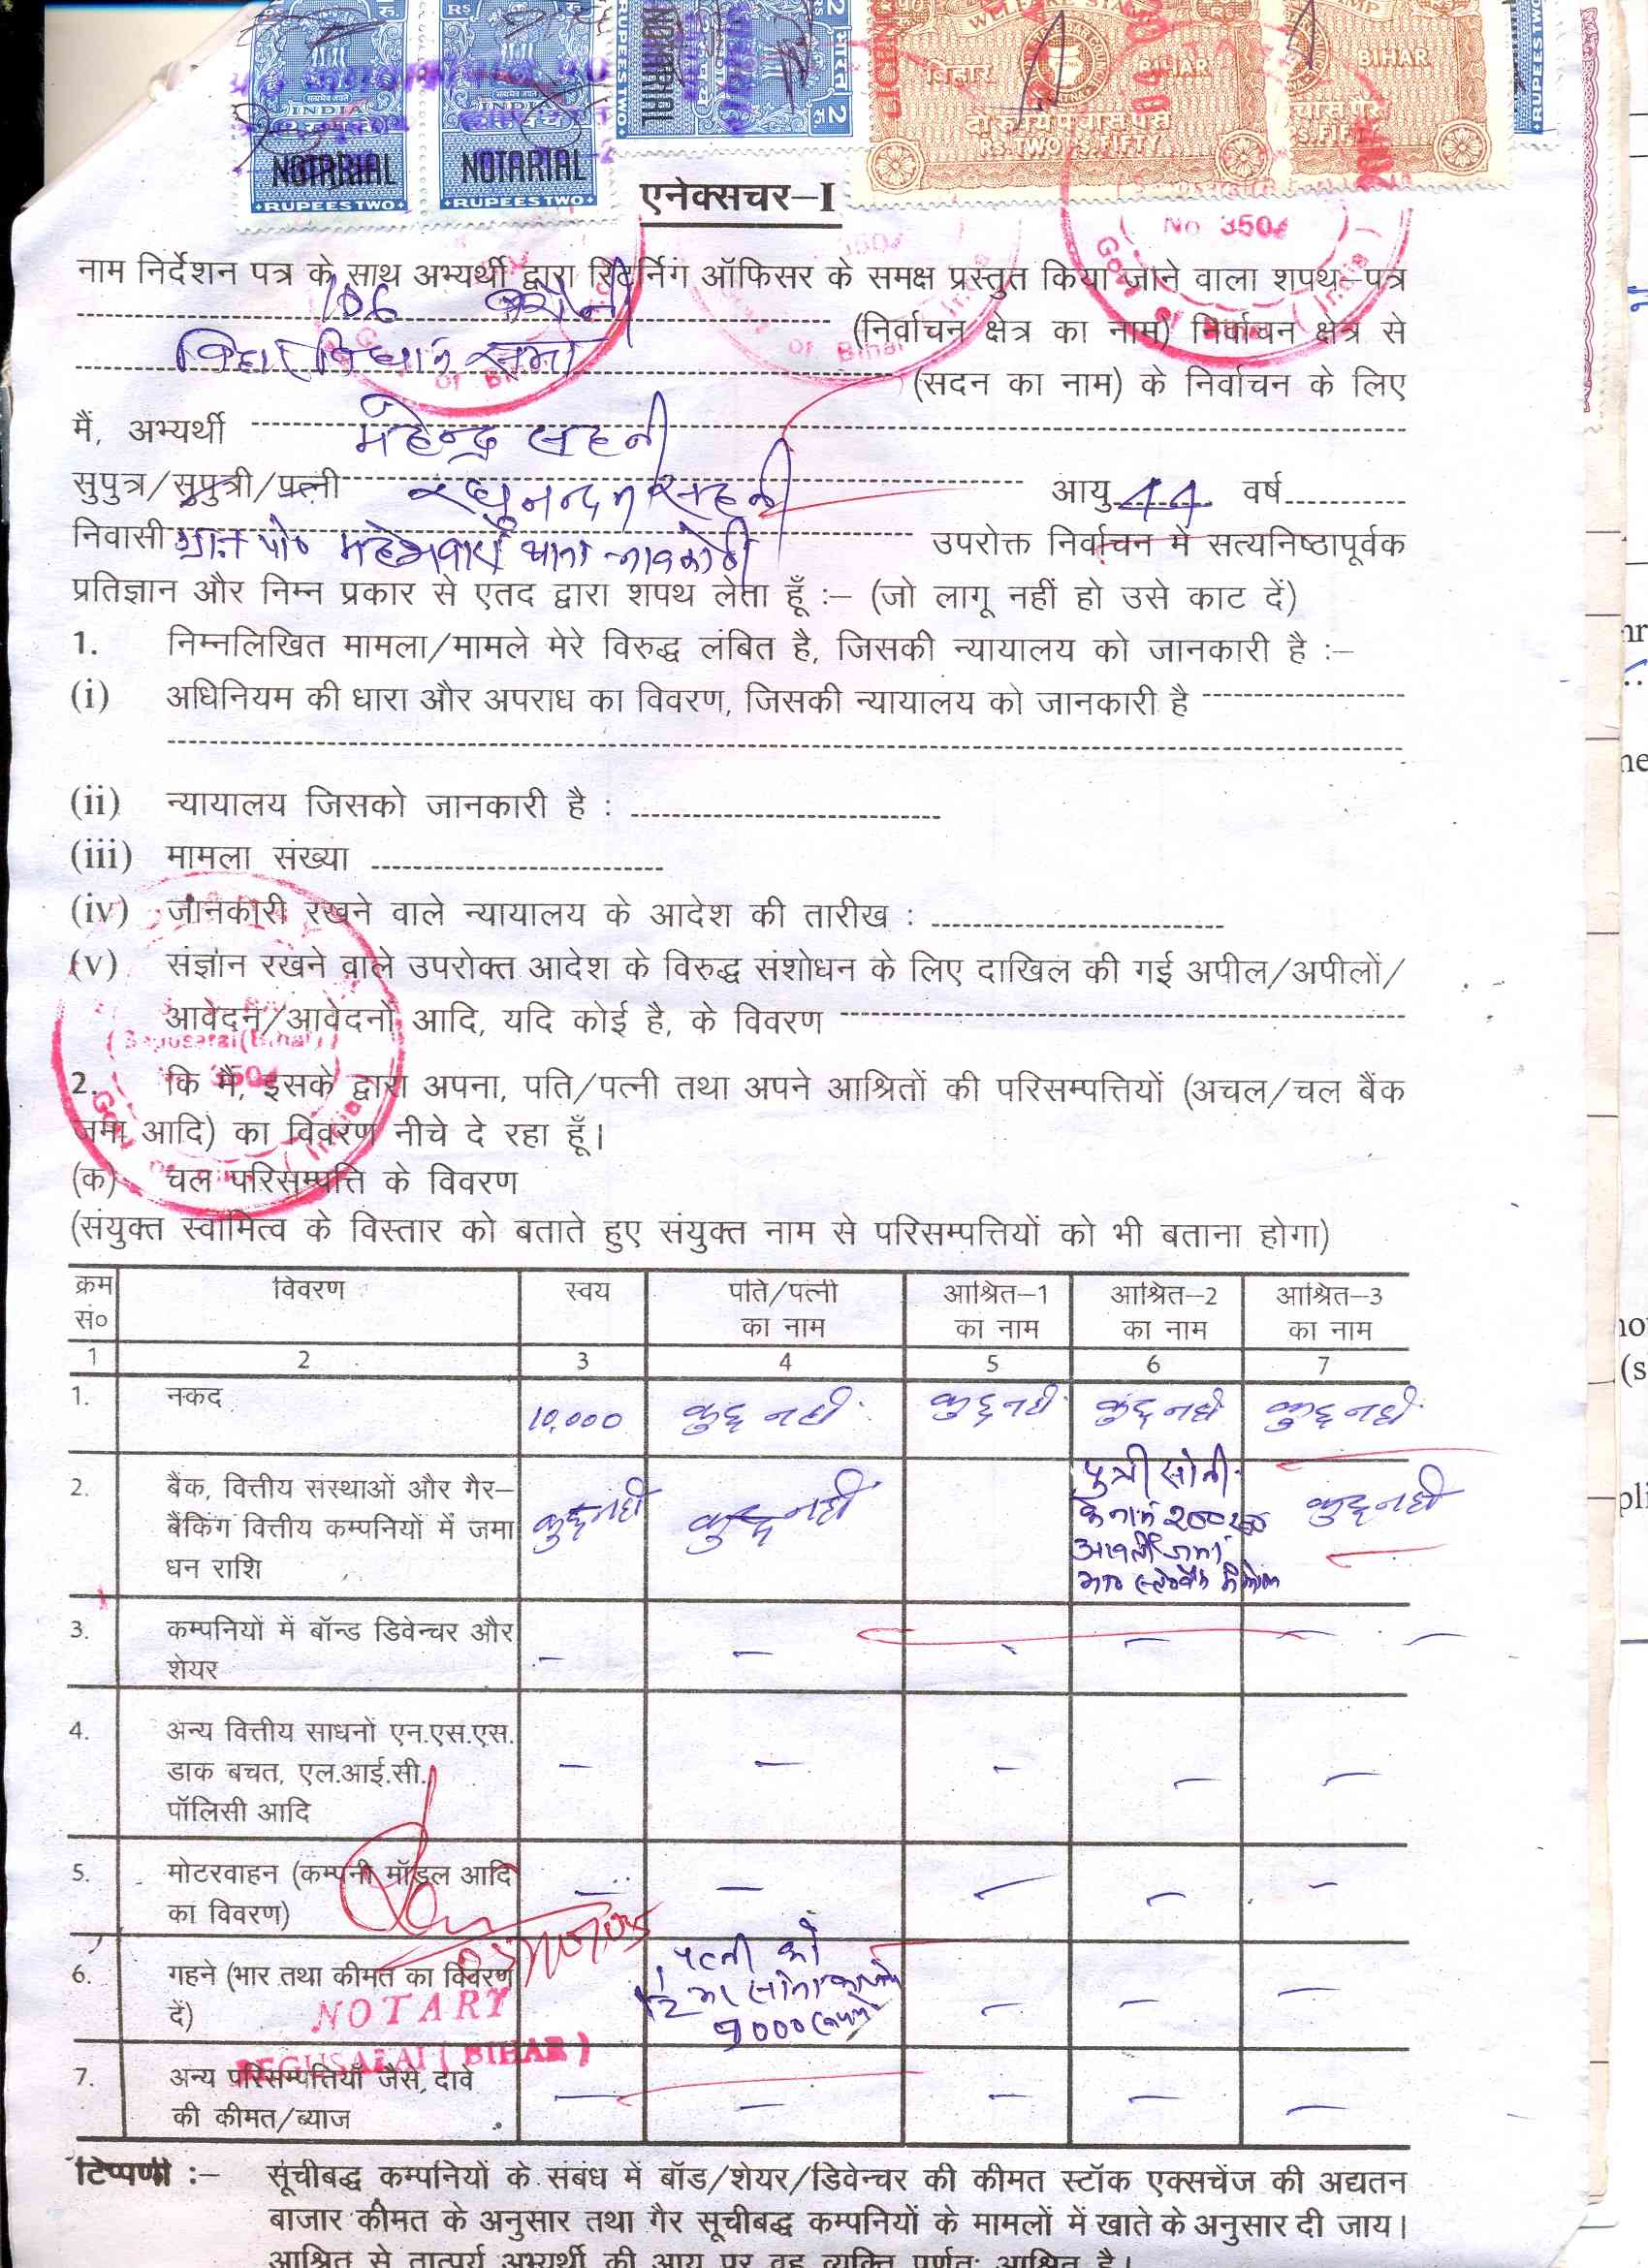 INDIA
INDIA
NOTARIAL
NOTARIAL
NOTARIAL
RUPEES TWO
RUPEES TWO
RUPEES TWO
RUPEES TWO
बिहार BIHAR
दो रूपये पचास पैसे
RS.TWO PS.FIFTY
BIHAR
एनेक्सचर–I
No 3504
नाम निर्देशन पत्र के साथ अभ्यर्थी द्वारा रिटर्निंग ऑफिसर के समक्ष प्रस्तुत किया जाने वाला शपथ–पत्र
106 बरौनी (निर्वाचन क्षेत्र का नाम) निर्वाचन क्षेत्र से
बिहार विधान सभा (सदन का नाम) के निर्वाचन के लिए
मैं, अभ्यर्थी महेन्द्र सहनी
सुपुत्र/सुपुत्री/पत्नी रघुनन्दन सहनी आयु 44 वर्ष
निवासी ग्राम पो० थाना नावकोठी उपरोक्त निर्वाचन में सत्यनिष्ठापूर्वक
प्रतिज्ञान और निम्न प्रकार से एतद द्वारा शपथ लेता हूँ :– (जो लागू नहीं हो उसे काट दें)
1. निम्नलिखित मामला/मामले मेरे विरुद्ध लंबित है, जिसकी न्यायालय को जानकारी है :–
(i) अधिनियम की धारा और अपराध का विवरण, जिसकी न्यायालय को जानकारी है
(ii) न्यायालय जिसको जानकारी है :
(iii) मामला संख्या
(iv) जानकारी रखने वाले न्यायालय के आदेश की तारीख :
(v) संज्ञान रखने वाले उपरोक्त आदेश के विरुद्ध संशोधन के लिए दाखिल की गई अपील/अपीलों/
आवेदन/आवेदनों आदि, यदि कोई है, के विवरण
2. कि मैं, इसके द्वारा अपना, पति/पत्नी तथा अपने आश्रितों की परिसम्पत्तियों (अचल/चल बैंक
जमा आदि) का विवरण नीचे दे रहा हूँ।
(क) चल परिसम्पत्ति के विवरण
(संयुक्त स्वामित्व के विस्तार को बताते हुए संयुक्त नाम से परिसम्पत्तियों को भी बताना होगा)
क्रम सं० विवरण स्वय पति/पत्नी का नाम आश्रित–1 का नाम आश्रित–2 का नाम आश्रित–3 का नाम
1 2 3 4 5 6 7
1. नकद 10,000 कुछ नही कुछ नही कुछ नही कुछ नही
2. बैंक, वित्तीय संस्थाओं और गैर– पुत्री सोनी
बैंकिंग वित्तीय कम्पनियों में जमा कुछ नही कुछ नही के नाम कुछ नही
धन राशि
3. कम्पनियों में बॉन्ड डिवेन्चर और – – – – –
शेयर
4. अन्य वित्तीय साधनों एन.एस.एस. – – – – –
डाक बचत, एल.आई.सी.
पॉलिसी आदि
5. मोटरवाहन (कम्पनी मॉडल आदि – – – – –
का विवरण)
6. गहने (भार तथा कीमत का विवरण पत्नी को – – –
दें) 9000
NOTARY
BEGUSARAI (BIHAR)
7. अन्य परिसम्पत्तियाँ जैसे, दावे – – – – –
की कीमत/ब्याज
टिप्पणी :– सूचीबद्ध कम्पनियों के संबंध में बॉड/शेयर/डिवेन्चर की कीमत स्टॉक एक्सचेंज की अद्यतन
बाजार कीमत के अनुसार तथा गैर सूचीबद्ध कम्पनियों के मामलों में खाते के अनुसार दी जाय।
आश्रित से तात्पर्य अभ्यर्थी की आय पर वह व्यक्ति पूर्णतः आश्रित है।